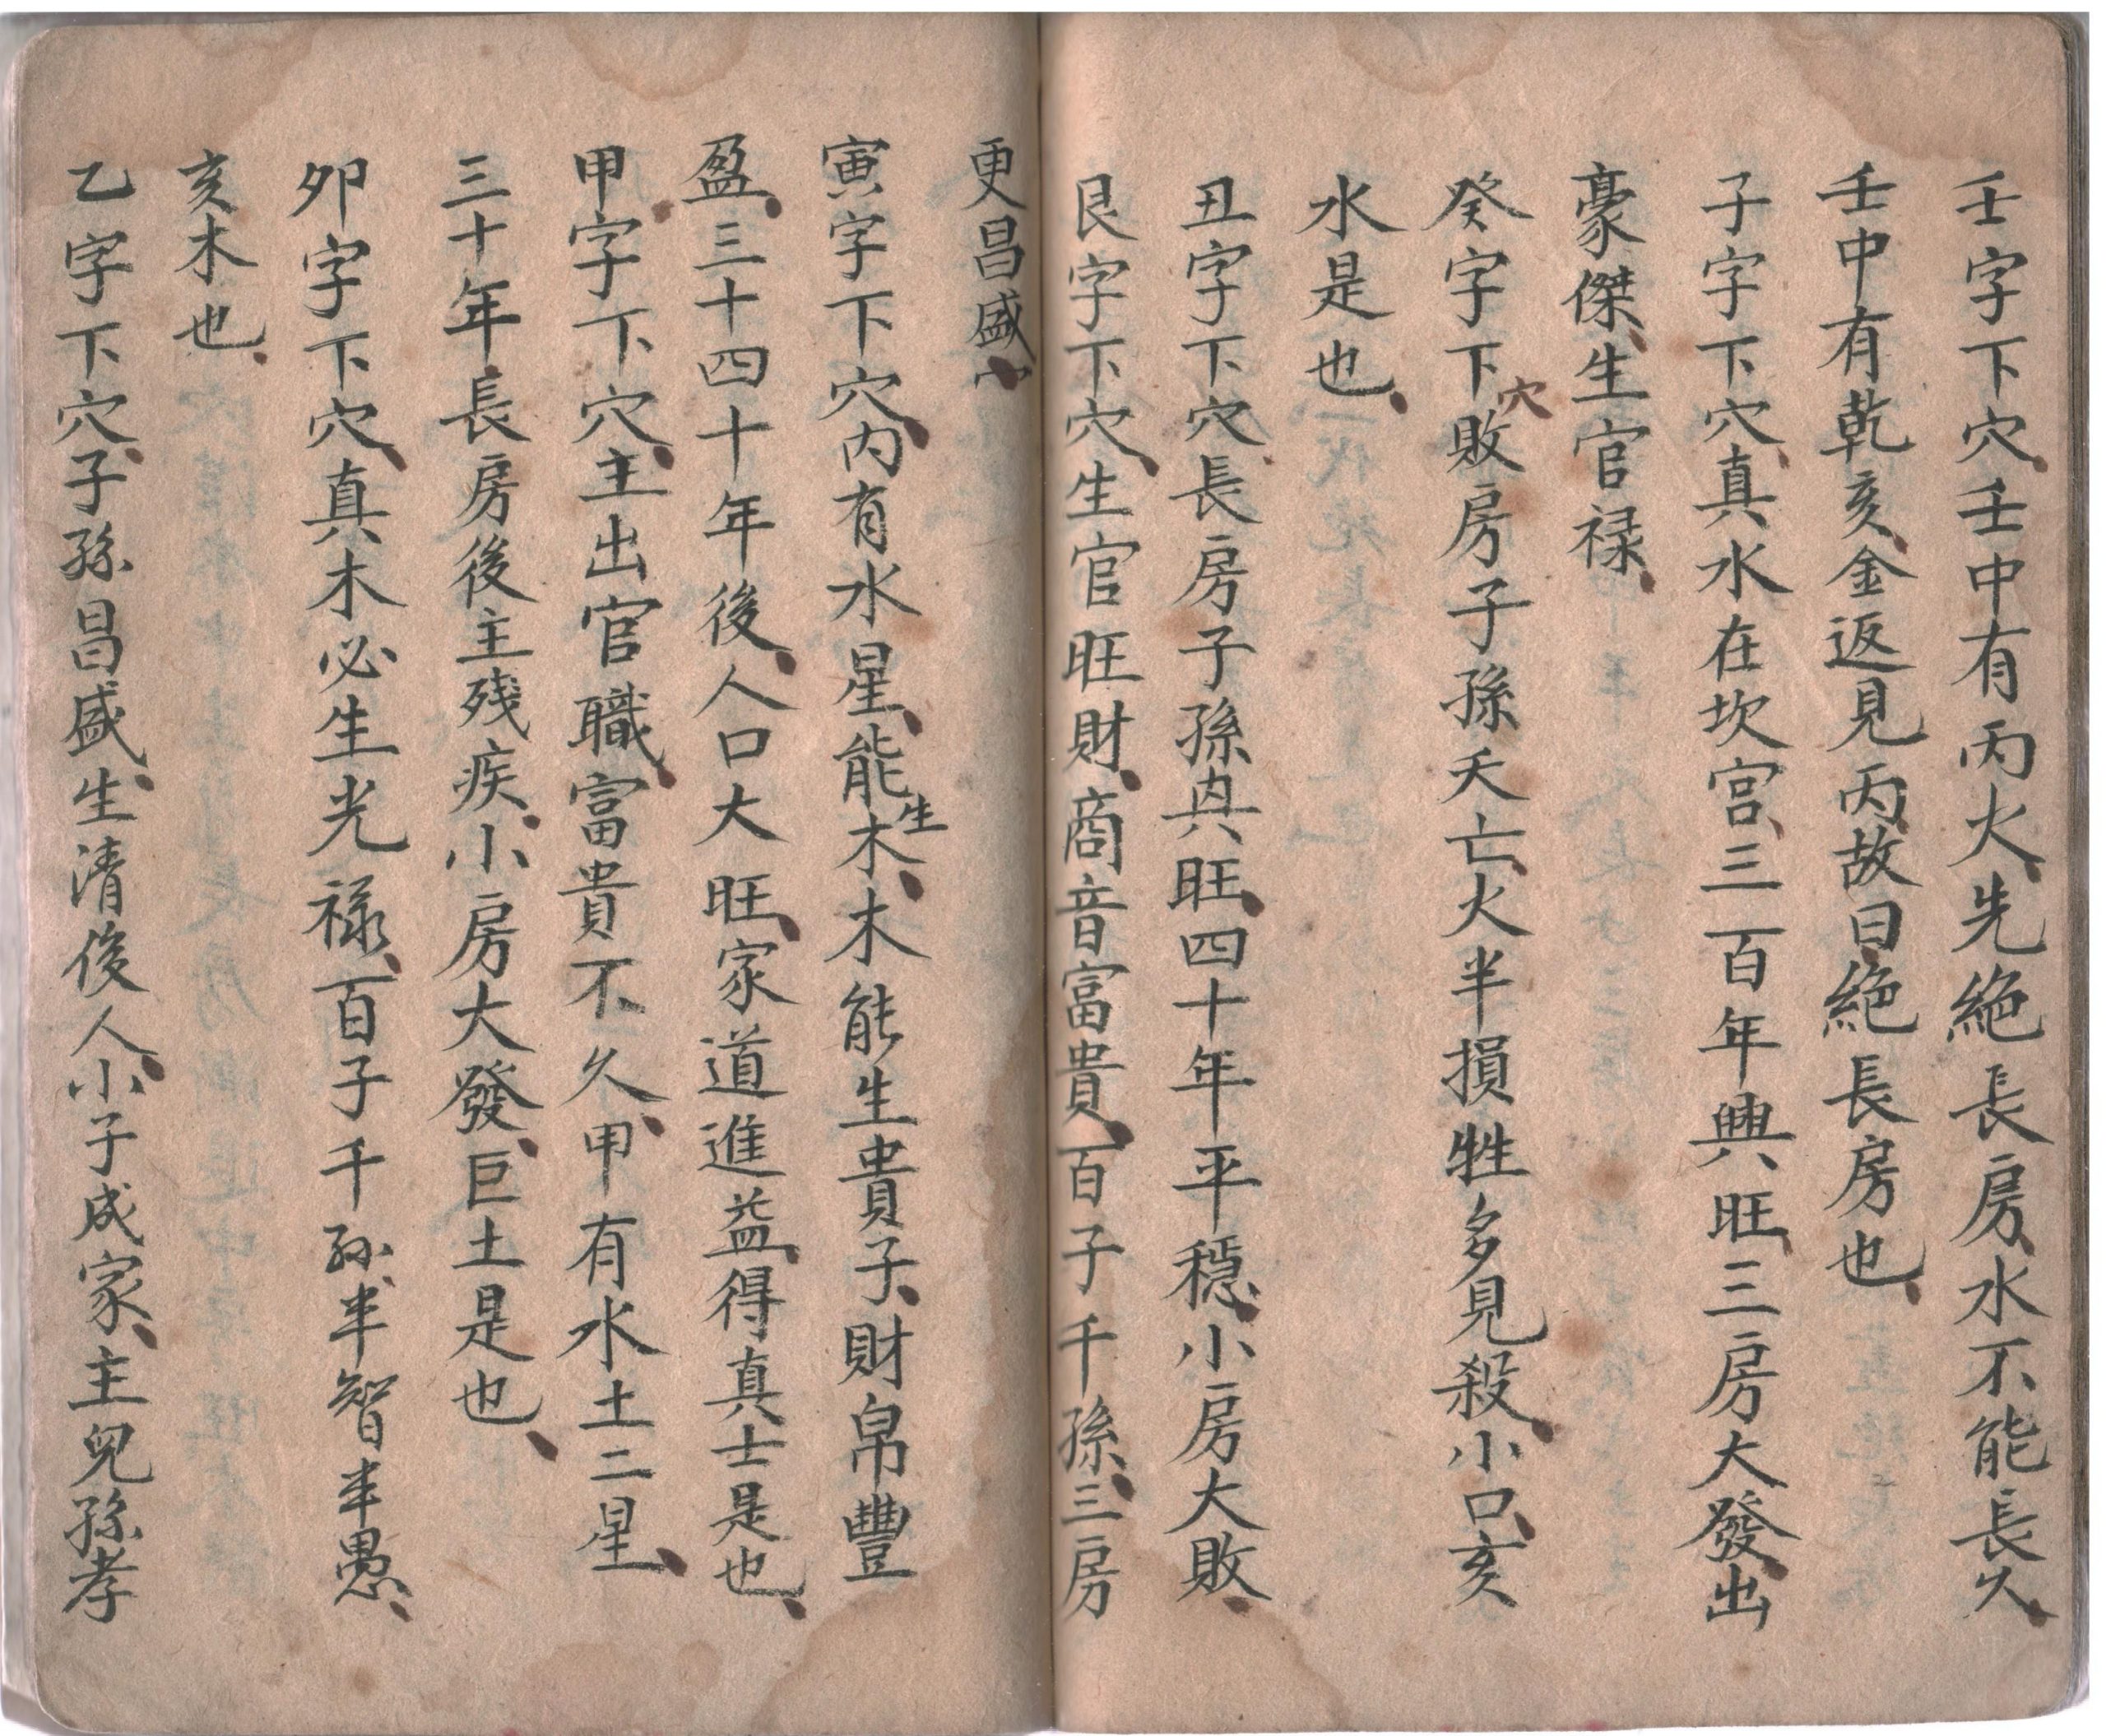 壬字下穴壬中有丙火先絕長房水不能長久
壬中有乾亥金返見丙故曰絕長房也
子字下穴真水在坎宮三百年興旺三房大發出
豪傑生官禄
癸字下穴敗房子孫夭亡火半損牲多見殺小口亥
水是也
丑字下穴長房子孫真旺四十年平穩小房大敗
艮字下穴生官旺財商音富貴百子千孫三房
更昌盛
寅字下穴内有水星能生木木能生貴子財帛豐
盈三十四十年後人口大旺家道進益得真士是也
甲字下穴主出官職富貴不久甲有水土二星
三十年長房後主殘疾小房大發巨土是也
卯字下穴真木必生光禄百子千孫半智半愚
亥木也
乙字下穴子孫昌盛生清俊人小子成家主兒孫孝